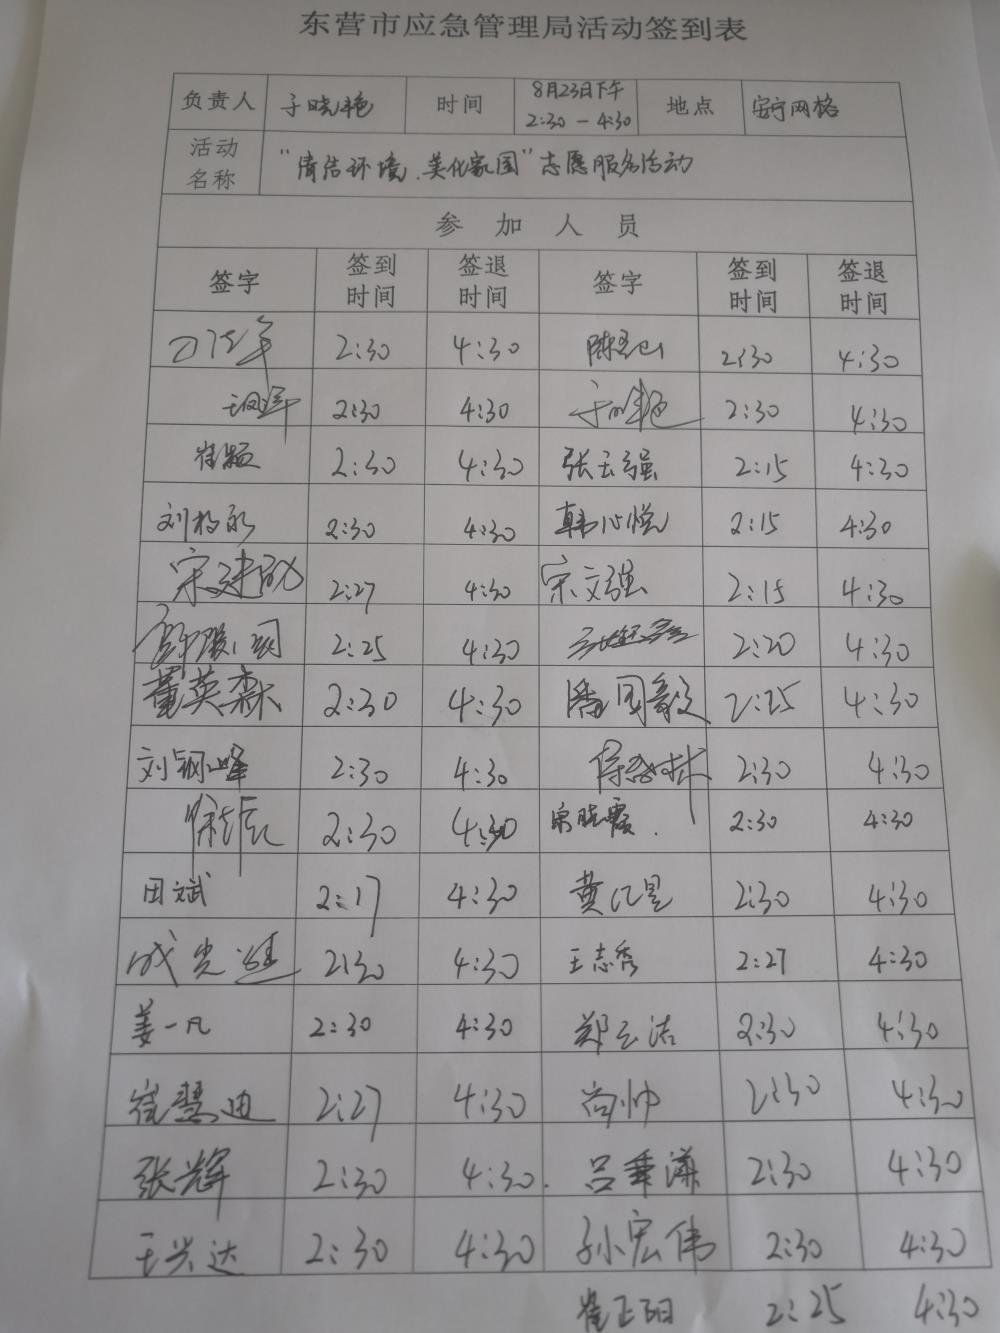 东营市应急管理局活动签到表
负责人 于晓艳 时间 8月23日下午 2:30-4:30 地点 安宁网格
活动名称 "清洁环境、美化家园"志愿服务活动
参加人员
签字 签到时间 签退时间 签字 签到时间 签退时间
2:30 4:30 2:30 4:30
2:30 4:30 于晓艳 2:30 4:30
崔颖 2:30 4:30 张玉强 2:15 4:30
2:30 4:30 韩心悦 2:15 4:30
宋建成 2:27 4:30 宋文强 2:15 4:30
2:25 4:30 2:20 4:30
董英森 2:30 4:30 潘国毅 2:25 4:30
刘钢峰 2:30 4:30 2:30 4:30
2:30 4:30 宋晓霞. 2:30 4:30
田斌 2:17 4:30 黄亿昱 2:30 4:30
成光 2:30 4:30 王志秀 2:27 4:30
姜一凡 2:30 4:30 郑云洁 2:30 4:30
崔慧迪 2:27 4:30 尚帅 2:30 4:30
张辉 2:30 4:30. 吕秉潇 2:30 4:30
王兴达 2:30 4:30 孙宏伟 2:30 4:30
崔正阳 2:25 4:30